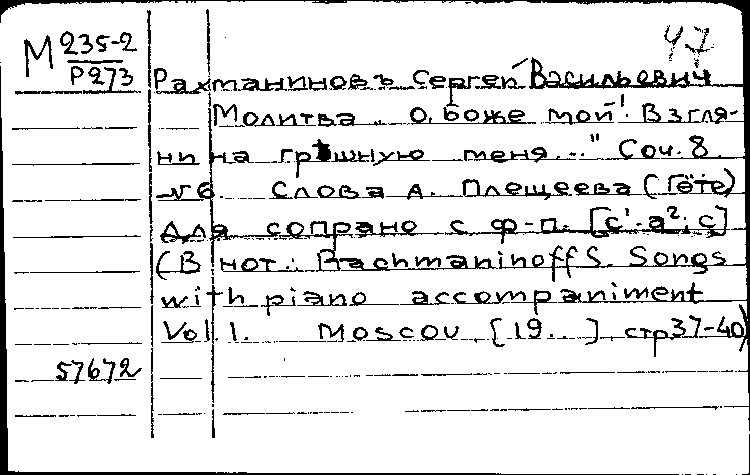 47
М 235-2
Р273
Рахманиновъ Сергей Васильевич
Молитва „О, Боже мой! Взгля-
ни на грѣшную меня..." Соч. 8.
№ 6. Слова А. Плещеева (Гёте)
Для сопрано с ф-п. [c'-a²; c]
(В нот.: Rachmaninoff S. Songs
with piano accompaniment
Vol. 1. Moscou, [19..] стр 37-40)
57672